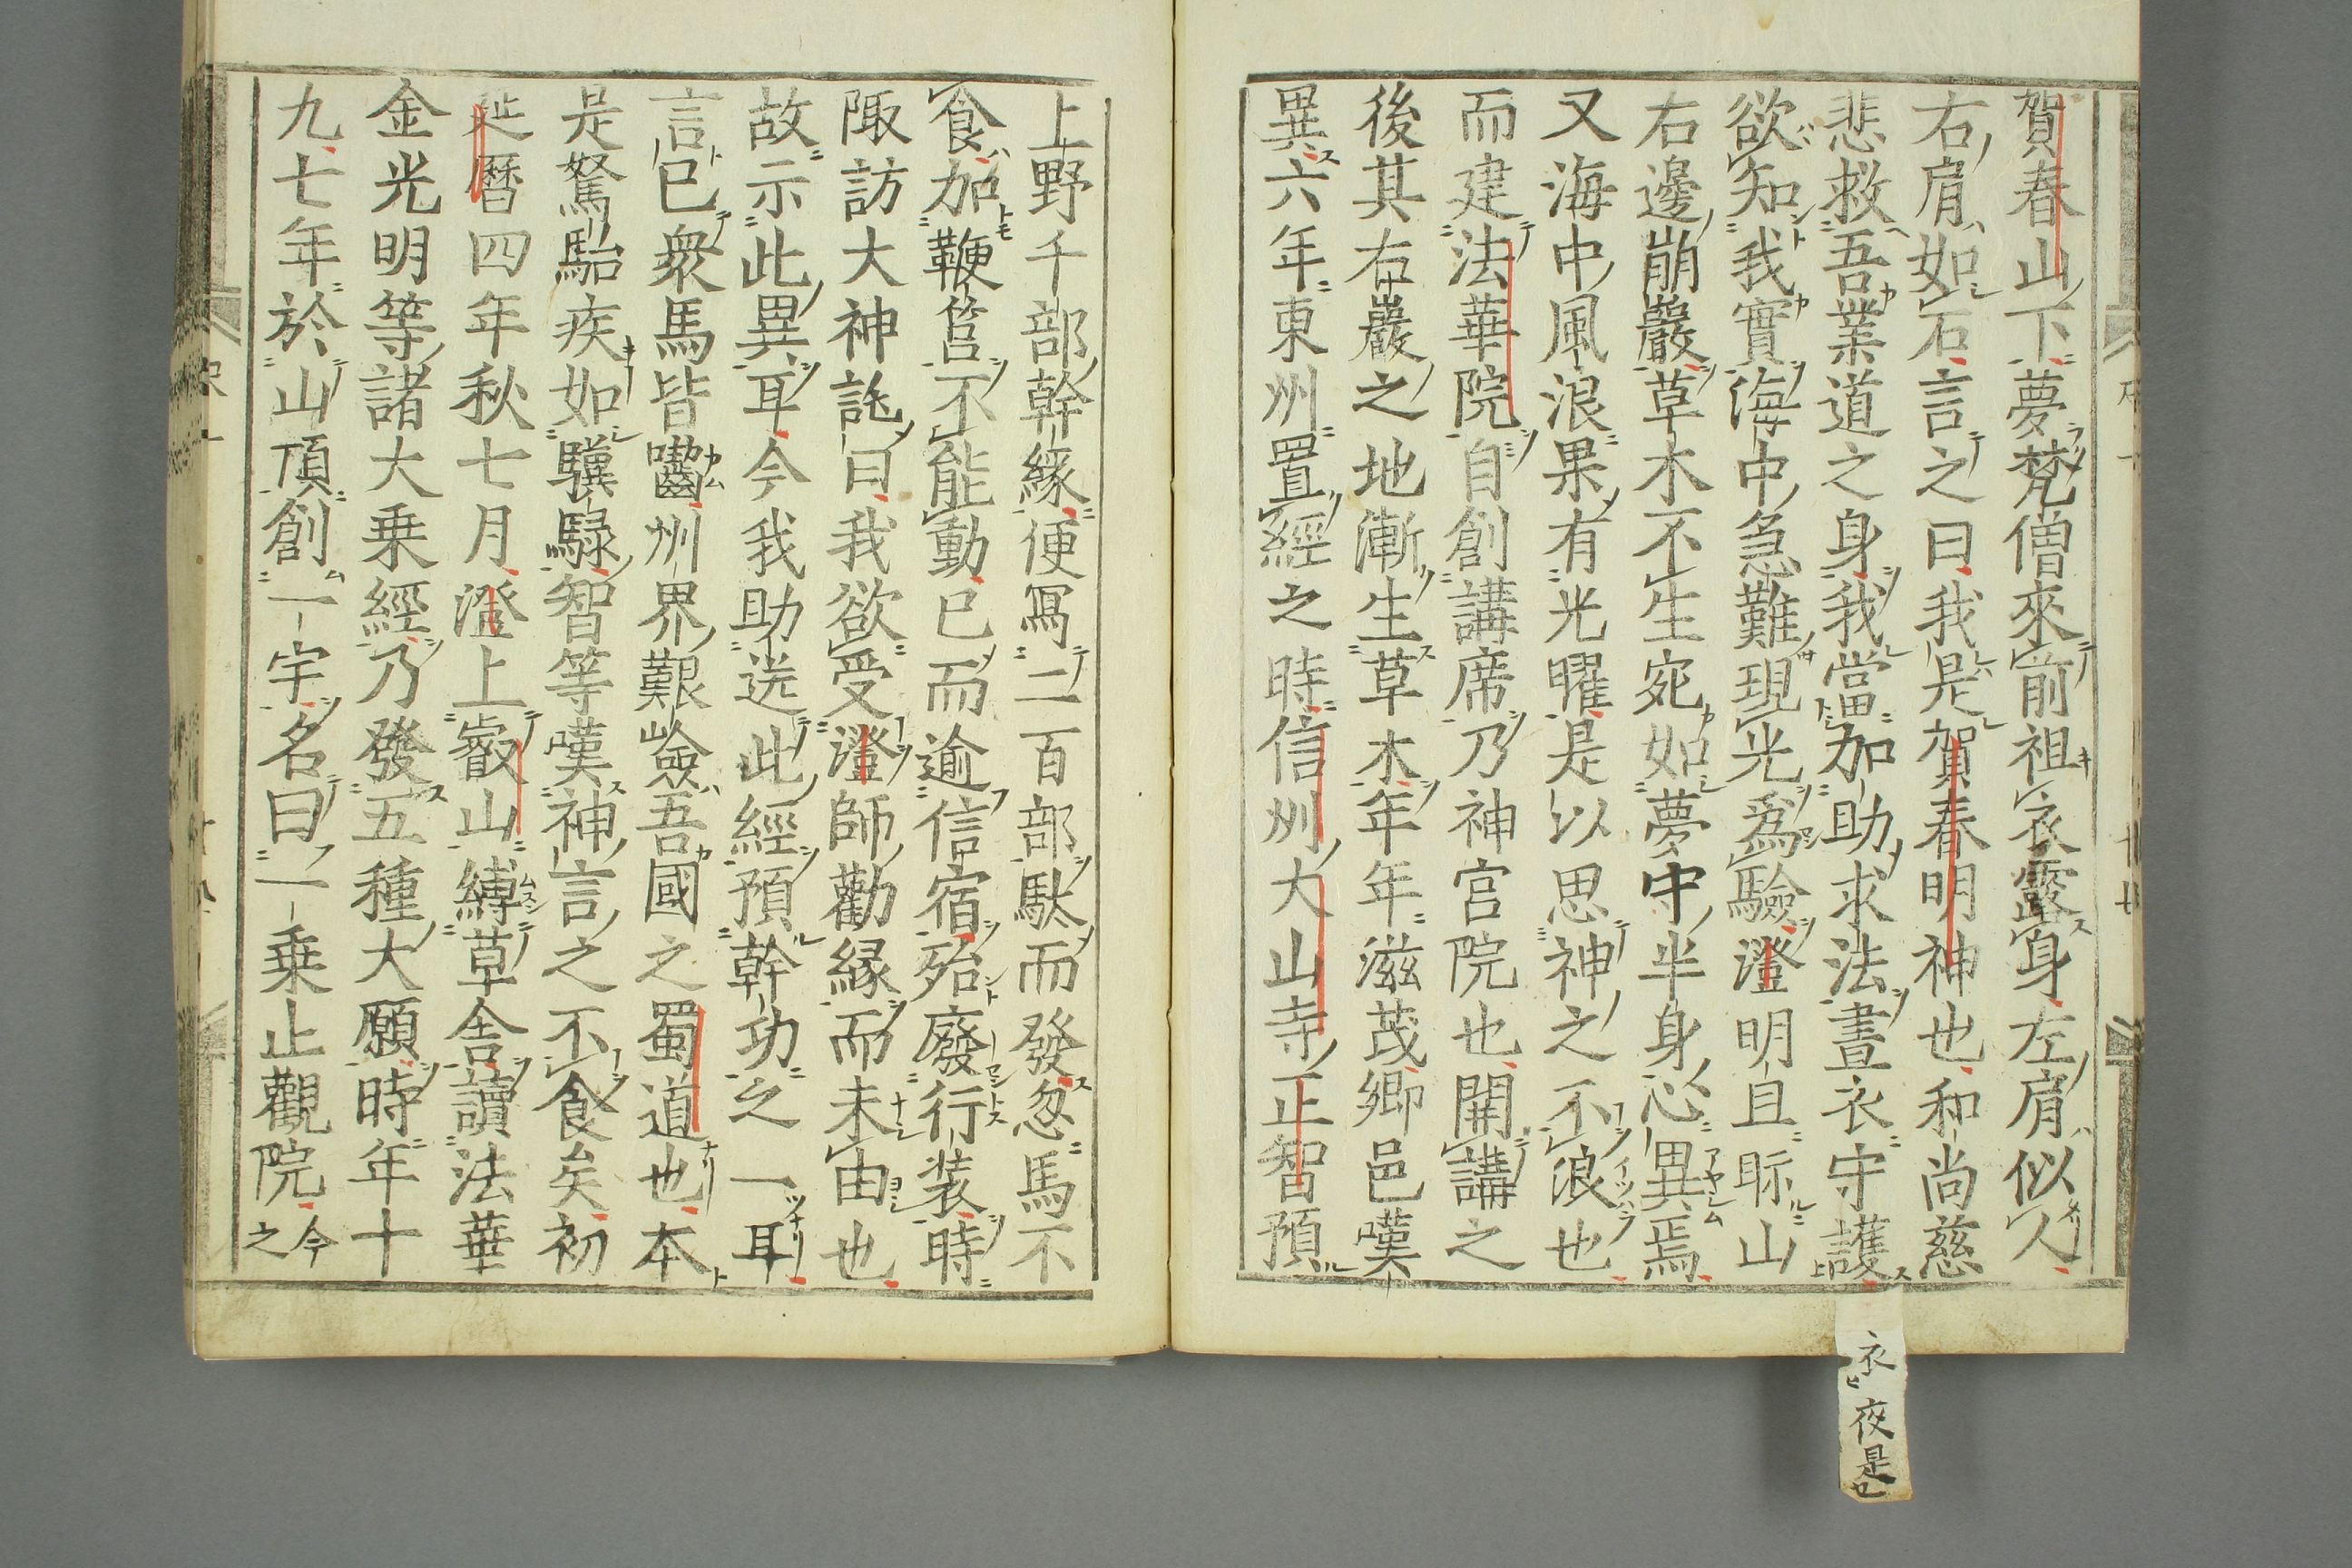 賀春山下夢梵僧來前祖衣露身左肩似人
右肩如石言之曰我是賀春明神也和尚慈
悲救吾業道之身我當加助求法晝衣守護
欲知我實海中急難現光爲驗澄明旦眎山
右邊崩巖草木不生宛如夢中半身心異焉
又海中風浪果有光曜是以思神之不浪也
而建法華院自創講席乃神宮院也開講之
後其右巖之地漸生草木年年滋茂鄉邑嘆
異六年東州置經之時信州大山寺正智預
上野千部幹緣便冩二百部馱而發忽馬不
食加鞭笞不能動已而逾信宿殆廢行装時
陬訪大神託曰我欲受澄師勸緣而未由也
故示此異耳今我助送此經預幹功之一耳
言已衆馬皆嚙州界艱嶮吾國之蜀道也本
是駑駘疾如驥騄智等嘆神言之不食矣初
延暦四年秋七月澄上叡山縛草舍讀法華
金光明等諸大乗經乃發五種大願時年十
九七年於山頂創一宇名曰一乗止觀院今之
衣ヒ夜是也